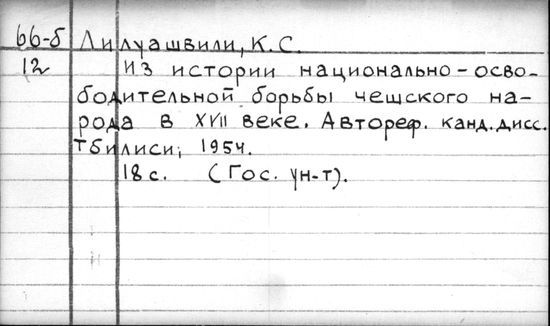 66-б Лилуашвили, К.С.
12 Из истории национально-осво-
бодительной борьбы чешского на-
рода в XVII веке. Автореф. канд. дисс.
Тбилиси, 1954.
18 с. (Гос. ун-т).